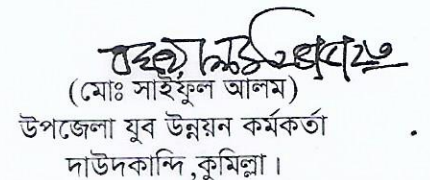 (মোঃ সাইফুল আলম)
উপজেলা যুব উন্নয়ন কর্মকর্তা
দাউদকান্দি ,কুমিল্লা।